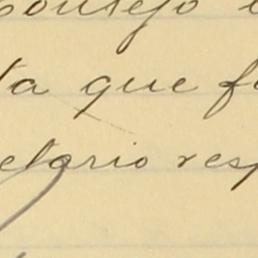 Consejo
ta que f
etario resp